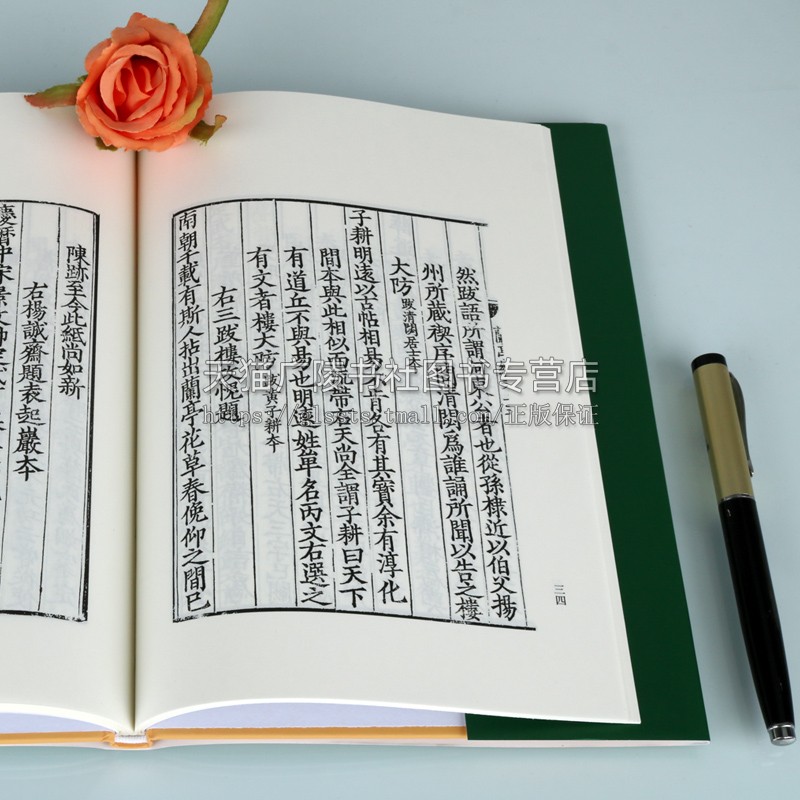 然跋語所謂
也從孫棣近以伯父揚
州所藏禊序
清閟為誰誦所聞以告之樓
大防
跋清閟居士本
子耕明遠以古帖相易
肯各有其寶余有淳化
閣本與此相似而
帶右天尚全謂子耕曰天下
有道丘不與易也明遠姓單名丙文右選之
有文者樓大防
跋黃子耕本
右三跋樓攻媿題
南朝千載有斯人拈出蘭亭花草春俛仰之間已
三四
陳跡至今此紙尚如新
右楊誠齋題袁起巖本
慶曆中宋景文帥定武
天猫广陵书社图书专营店
https://glsstsy.tmall.com/正版保证